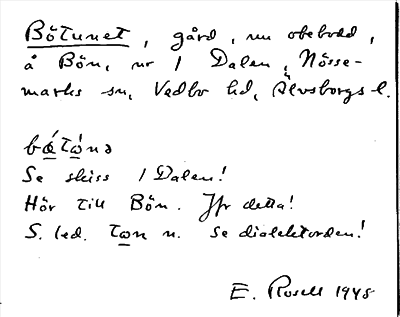 Bötunet, gård, nu obebodd,
å Bön, nr 1 Dalen, Nösse-
marks sn, Vedbo hd, Älvsborgs l.
bǽtὼnə
Se skiss 1 Dalen!
Hör till Bön. Jfr detta!
S. led. tωn n. se dialektorden!
E. Rosell 1948